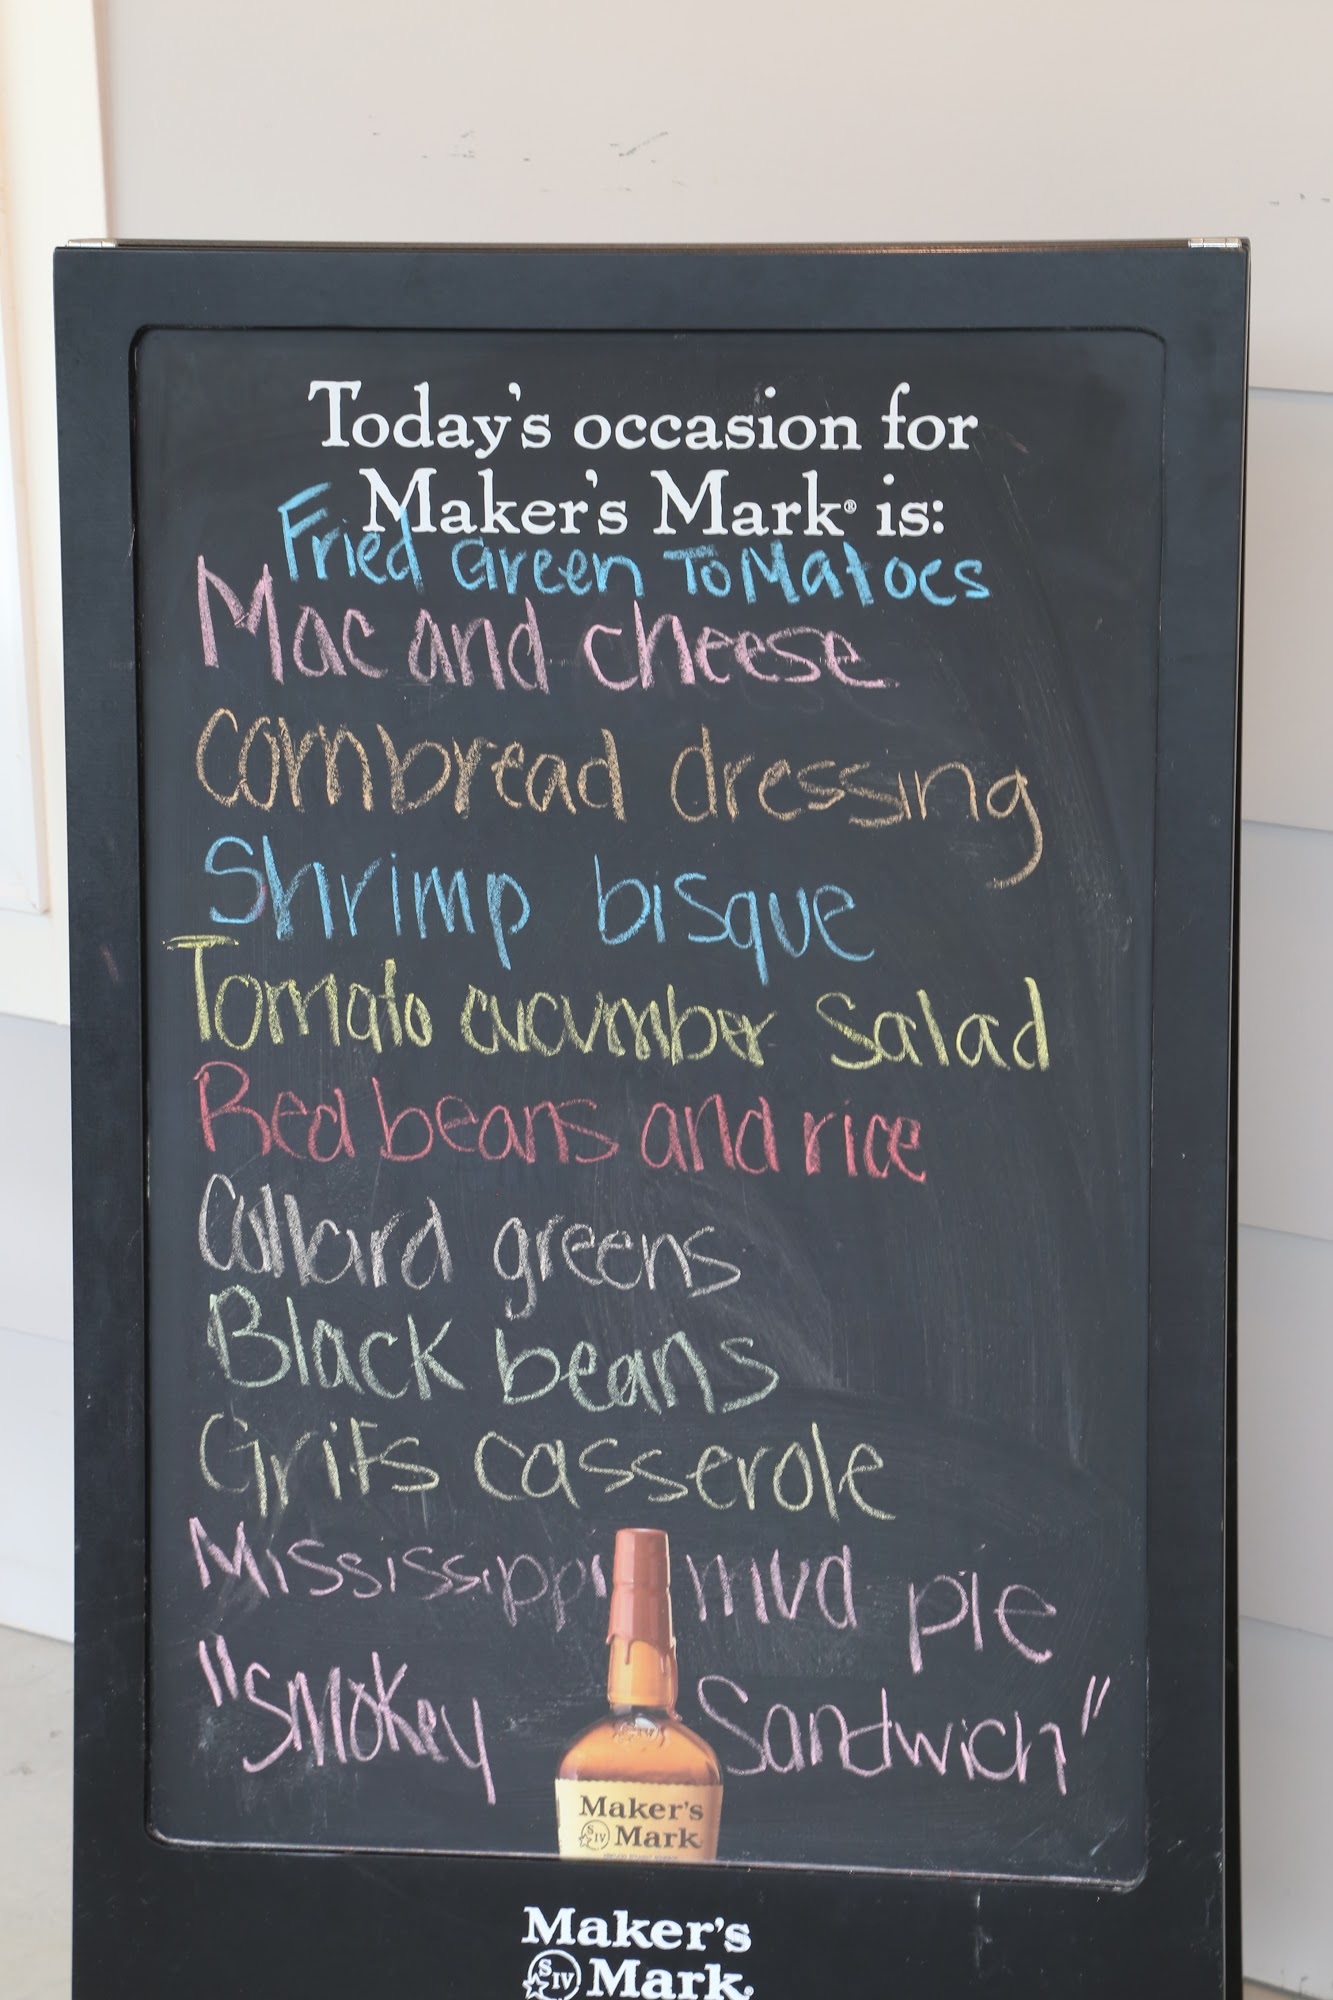 Today's occasion for
Maker's Mark® is:
Fried Green ToMatoes
Mac and cheese
cornbread dressing
Shrimp bisque
Tomato cucumber Salad
Red beans and rice
Collard greens
Black beans
Grits casserole
Mississippi mud pie
"SMoKey Sandwich"
Maker's
SIV Mark
Maker's
SIV Mark